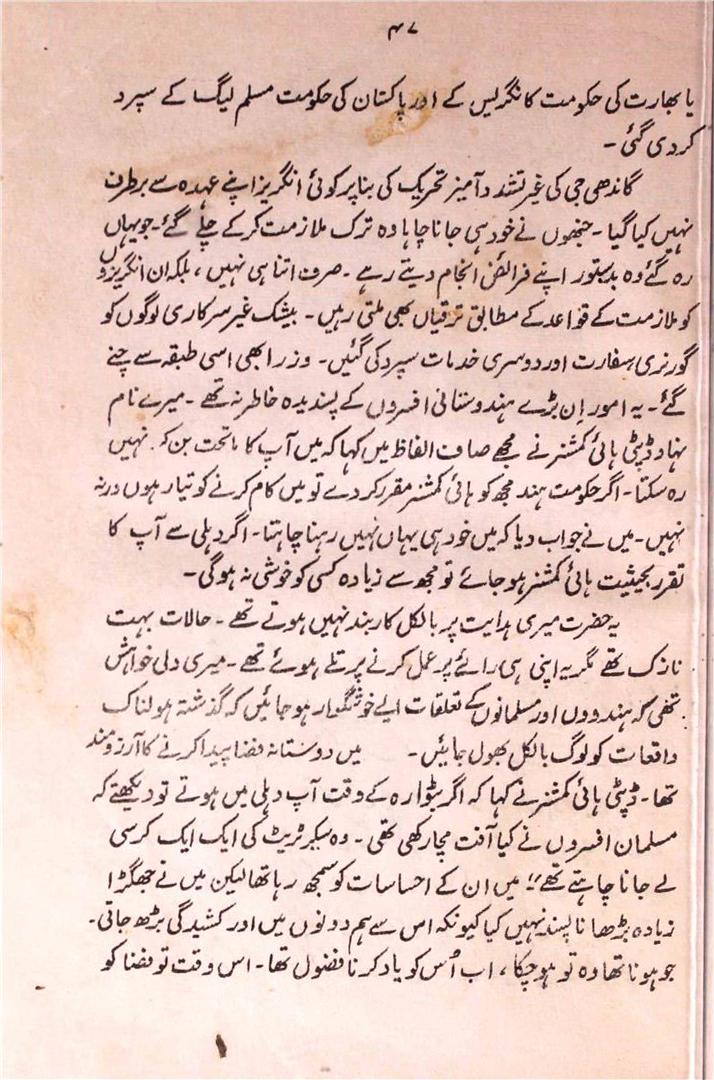 ۴۷
یا بھارت کی حکومت کانگریس کے اور پاکستان کی حکومت مسلم لیگ کے سپرد
کر دی گئی ۔
گاندھی جی کی غیر تشدد آمیز تحریک کی بنا پر کوئی انگریز اپنے عہدہ سے برطرف
نہیں کیا گیا ۔ جنھوں نے خود ہی جانا چاہا وہ ترک ملازمت کر کے چلے گئے ۔ جو یہاں
رہ گئے وہ بدستور اپنے فرائض انجام دیتے رہے ۔ صرف اتنا ہی نہیں ، بلکہ ان انگریزوں
کو ملازمت کے قواعد کے مطابق ترقیاں بھی ملتی رہیں ۔ بیشک غیر سرکاری لوگوں کو
گورنری سفارت اور دوسری خدمات سپرد کی گئیں ۔ وزرا بھی اسی طبقہ سے چنے
گئے ۔ یہ امور اِن بڑے ہندوستانی افسروں کے پسندیدہ خاطر نہ تھے ۔ میرے نام
نہاد ڈپٹی ہائی کمشنر نے مجھے صاف الفاظ میں کہا کہ میں آپ کا ماتحت بن کر نہیں
رہ سکتا ۔ اگر حکومت ہند مجھ کو ہائی کمشنر مقرر کر دے تو میں کام کرنے کو تیار ہوں ورنہ
نہیں ۔ میں نے جواب دیا کہ میں خود ہی یہاں نہیں رہنا چاہتا ۔ اگر دہلی سے آپ کا
تقرر بحیثیت ہائی کمشنر ہو جائے تو مجھ سے زیادہ کسی کو خوشی نہ ہو گی ۔
یہ حضرت میری ہدایت پر بالکل کاربند نہیں ہوتے تھے ۔ حالات بہت
نازک تھے مگر یہ اپنی ہی رائے پر عمل کرنے پر تلے ہوئے تھے ۔ میری دلی خواہش
تھی کہ ہندووں اور مسلمانوں کے تعلقات ایسے خوشگوار ہو جائیں کہ گذشتہ ہولناک
واقعات کو لوگ بالکل بھول جائیں ۔ میں دوستانہ فضا پیدا کرنے کا آرزومند
تھا ۔ ڈپٹی ہائی کمشنر نے کہا کہ اگر بٹوارہ کے وقت آپ دہلی میں ہوتے تو دیکھتے کہ
مسلمان افسروں نے کیا آفت مچا رکھی تھی ۔ وہ سیکرٹریٹ کی ایک ایک کرسی
لے جانا چاہتے تھے" میں ان کے احساسات کو سمجھ رہا تھا لیکن میں نے جھگڑا
زیادہ بڑھانا پسند نہیں کیا کیونکہ اس سے ہم دونوں میں اور کشیدگی بڑھ جاتی ۔
جو ہونا تھا وہ تو ہو چکا ، اب اُس کو یاد کرنا فضول تھا ۔ اس وقت تو فضا کو